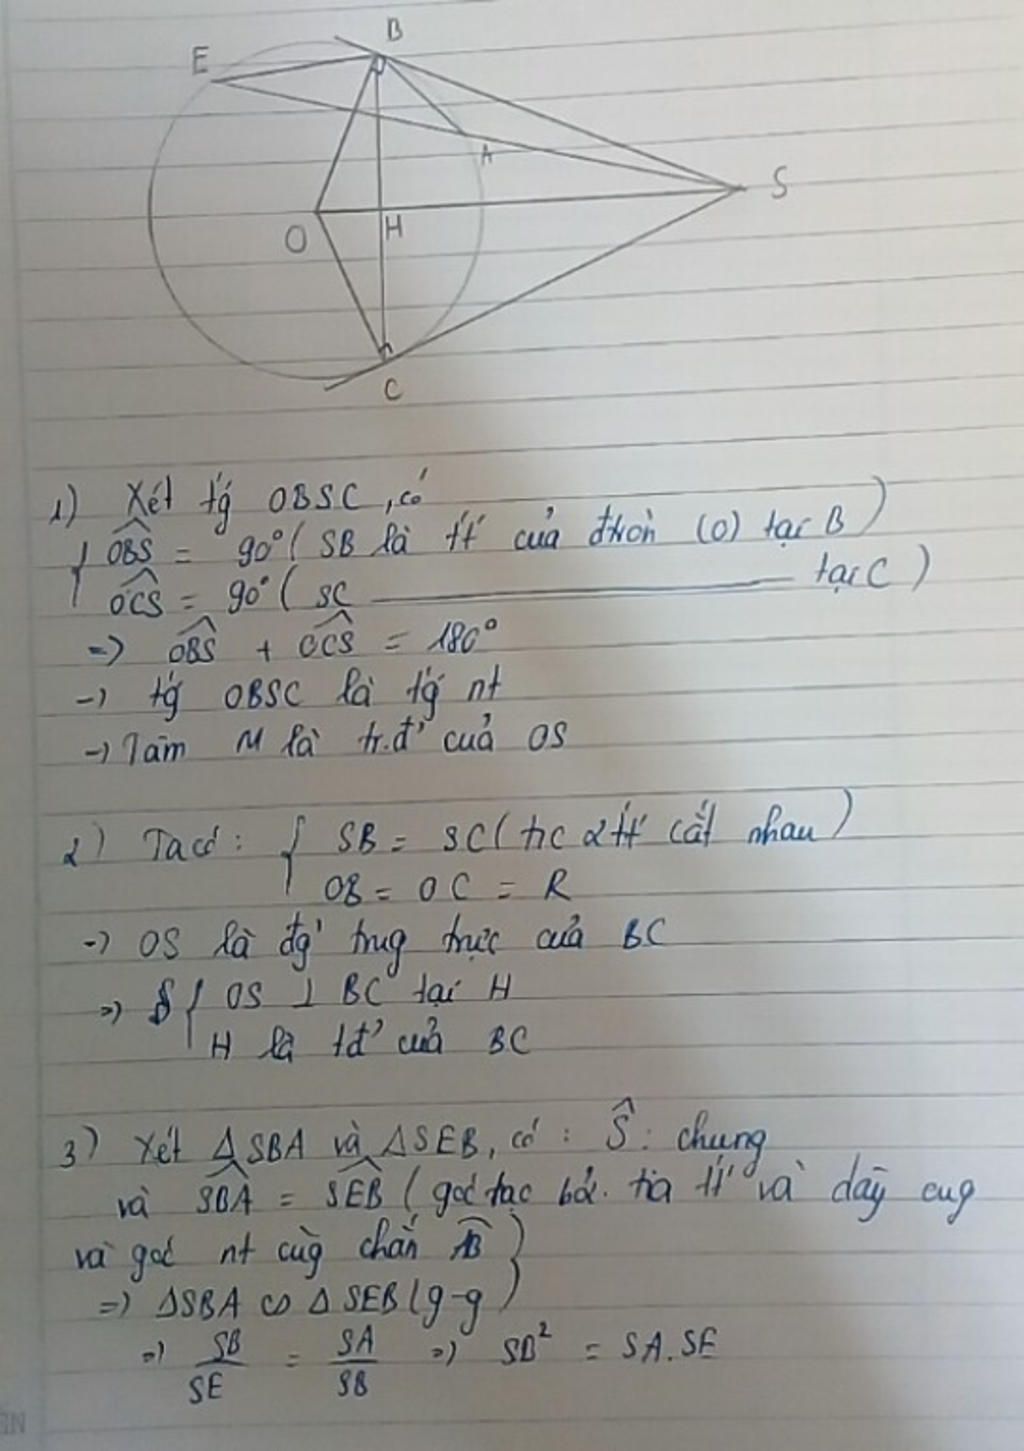 B
E
A
S
O
H
C
1) Xét tứ OBSC, có
OBS = 90° ( SB là tt của đtròn (O) tại B )
OCS = 90° ( SC ——— tại C )
=> OBS + OCS = 180°
-> tứ OBSC là tứ nt
-> Tâm M là tr.đ' của OS
2) Ta có : { SB = SC ( t/c 2 tt cắt nhau )
OB = OC = R
-> OS là đg' trug trực của BC
=> { OS ⊥ BC tại H
H là tđ' của BC
3) Xét Δ SBA và Δ SEB, có : Ŝ : chung
và SBA = SEB ( góc tạc bởi tia tt và dây cug
và góc nt cùg chắn AB )
=> Δ SBA ∽ Δ SEB ( g-g )
=> SB/SE = SA/SB => SB² = SA.SE